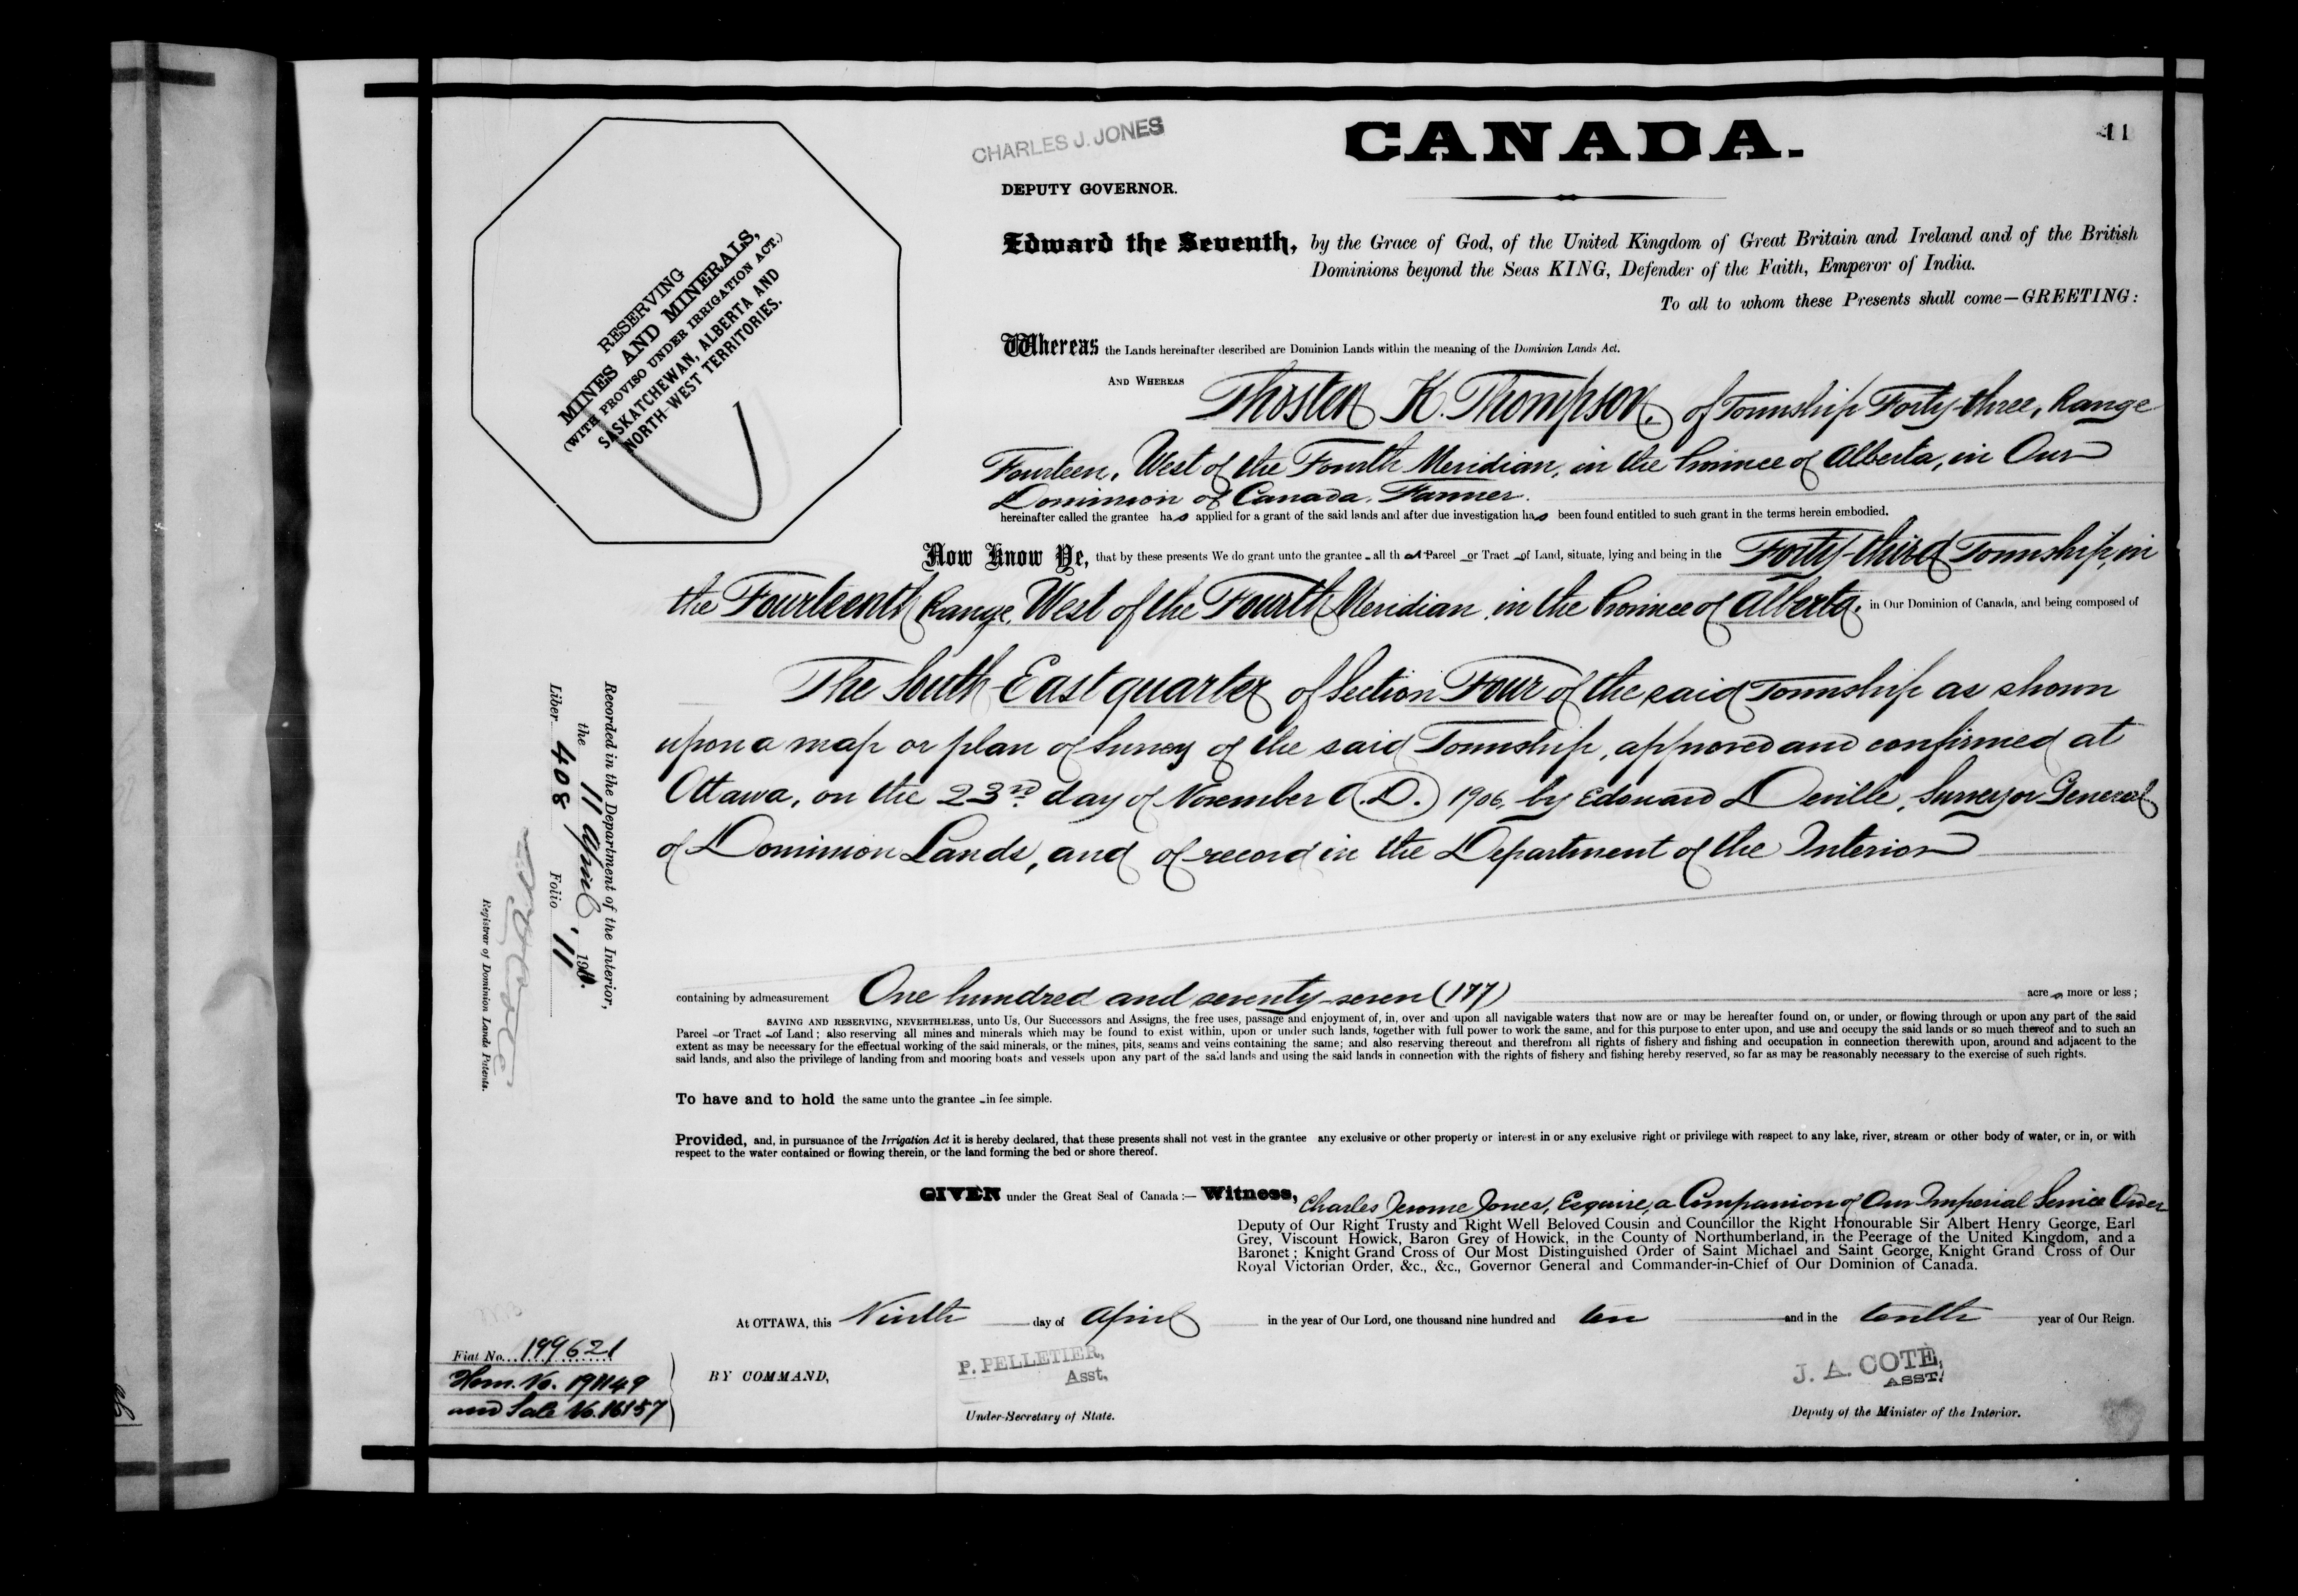 CHARLES J. JONES
CANADA.
11
DEPUTY GOVERNOR.
Edward the Seventh, by the Grace of God, of the United Kingdom of Great Britain and Ireland and of the British
Dominions beyond the Seas KING, Defender of the Faith, Emperor of India.
To all to whom these Presents shall come—GREETING:
RESERVING
MINES AND MINERALS,
(WITH PROVISO UNDER IRRIGATION ACT.)
SASKATCHEWAN, ALBERTA AND
NORTH-WEST TERRITORIES.
Whereas the Lands hereinafter described are Dominion Lands within the meaning of the Dominion Lands Act.
AND WHEREAS Thosten K. Thompson, of Township Forty-three, Range
Fourteen, West of the Fourth Meridian, in the Province of Alberta, in Our
Dominion of Canada, Farmer.
hereinafter called the grantee has applied for a grant of the said lands and after due investigation has been found entitled to such grant in the terms herein embodied.
Now Know Ye, that by these presents We do grant unto the grantee all that Parcel or Tract of Land, situate, lying and being in the Forty-third Township, in
the Fourteenth Range, West of the Fourth Meridian, in the Province of Alberta, in Our Dominion of Canada, and being composed of
The South East quarter of Section Four of the said Township as shown
upon a map or plan of Survey of the said Township, approved and confirmed at
Ottawa, on the 23rd day of November A.D. 1906, by Edouard Deville, Surveyor General
of Dominion Lands, and of record in the Department of the Interior
containing by admeasurement One hundred and seventy-seven (177) acres more or less;
SAVING AND RESERVING, NEVERTHELESS, unto Us, Our Successors and Assigns, the free uses, passage and enjoyment of, in, over and upon all navigable waters that now are or may be hereafter found on, or under, or flowing through or upon any part of the said
Parcel or Tract of Land; also reserving all mines and minerals which may be found to exist within, upon or under such lands, together with full power to work the same, and for this purpose to enter upon, and use and occupy the said lands or so much thereof and to such an
extent as may be necessary for the effectual working of the said minerals, or the mines, pits, seams and veins containing the same; and also reserving thereout and therefrom all rights of fishery and fishing and occupation in connection therewith upon, around and adjacent to the
said lands, and also the privilege of landing from and mooring boats and vessels upon any part of the said lands and using the said lands in connection with the rights of fishery and fishing hereby reserved, so far as may be reasonably necessary to the exercise of such rights.
To have and to hold the same unto the grantee in fee simple.
Provided, and, in pursuance of the Irrigation Act it is hereby declared, that these presents shall not vest in the grantee any exclusive or other property or interest in or any exclusive right or privilege with respect to any lake, river, stream or other body of water, or in, or with
respect to the water contained or flowing therein, or the land forming the bed or shore thereof.
GIVEN under the Great Seal of Canada:— Witness, Charles Jerome Jones, Esquire, a Companion of Our Imperial Service Order
Deputy of Our Right Trusty and Right Well Beloved Cousin and Councillor the Right Honourable Sir Albert Henry George, Earl
Grey, Viscount Howick, Baron Grey of Howick, in the County of Northumberland, in the Peerage of the United Kingdom, and a
Baronet; Knight Grand Cross of Our Most Distinguished Order of Saint Michael and Saint George, Knight Grand Cross of Our
Royal Victorian Order, &c., &c., Governor General and Commander-in-Chief of Our Dominion of Canada.
At OTTAWA, this Ninth day of April in the year of Our Lord, one thousand nine hundred and ten and in the tenth year of Our Reign.
BY COMMAND,
P. PELLETIER,
Asst.
Under-Secretary of State.
J. A. COTÉ,
ASST.
Deputy of the Minister of the Interior.
Recorded in the Department of the Interior,
the 11 April 191
Liber 408 Folio 11
Registrar of Dominion Lands Patents.
Fiat No. 199621
Hom. No. 191149
and Sale No. 16157